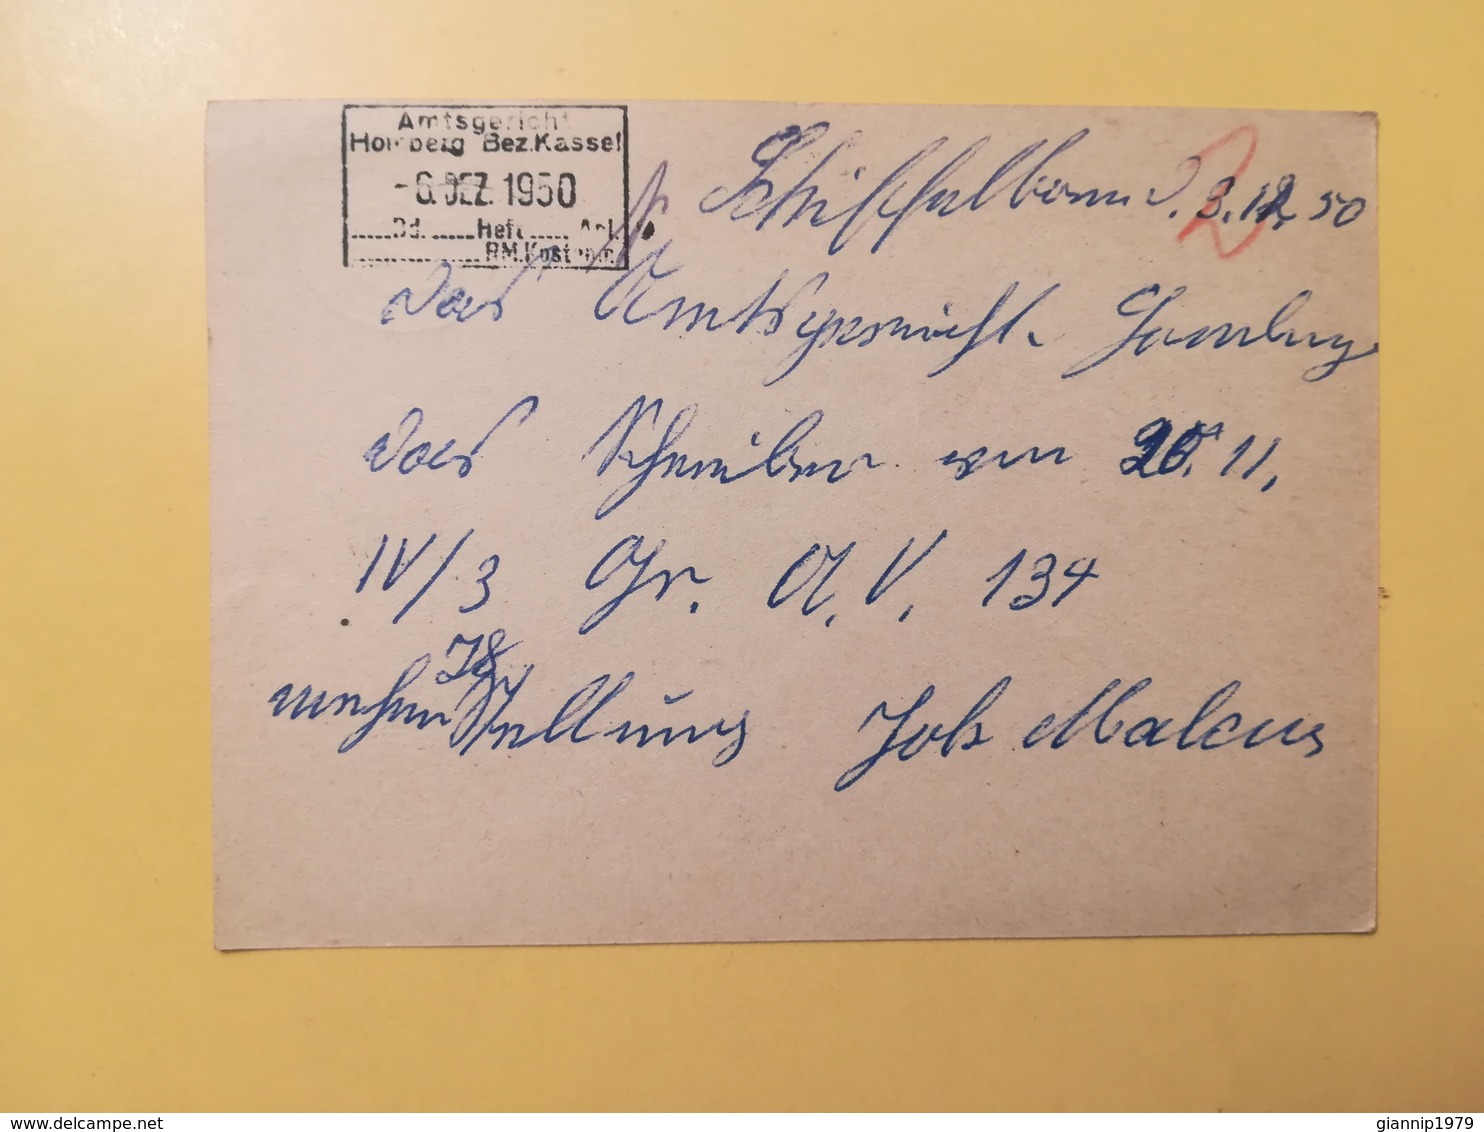 Amtsgericht
Homberg Bez.Kassel
-6. DEZ. 1950
.....Bd. ......Heft ...... Anl.
.................RM.Kostenm.
d. 3.12.50
2
das Amtsgericht Homberg
das Schreiben vom 20. 11.
IV/3 Gr. A. V. 134
Stellung Joh Malcus
giannip1979